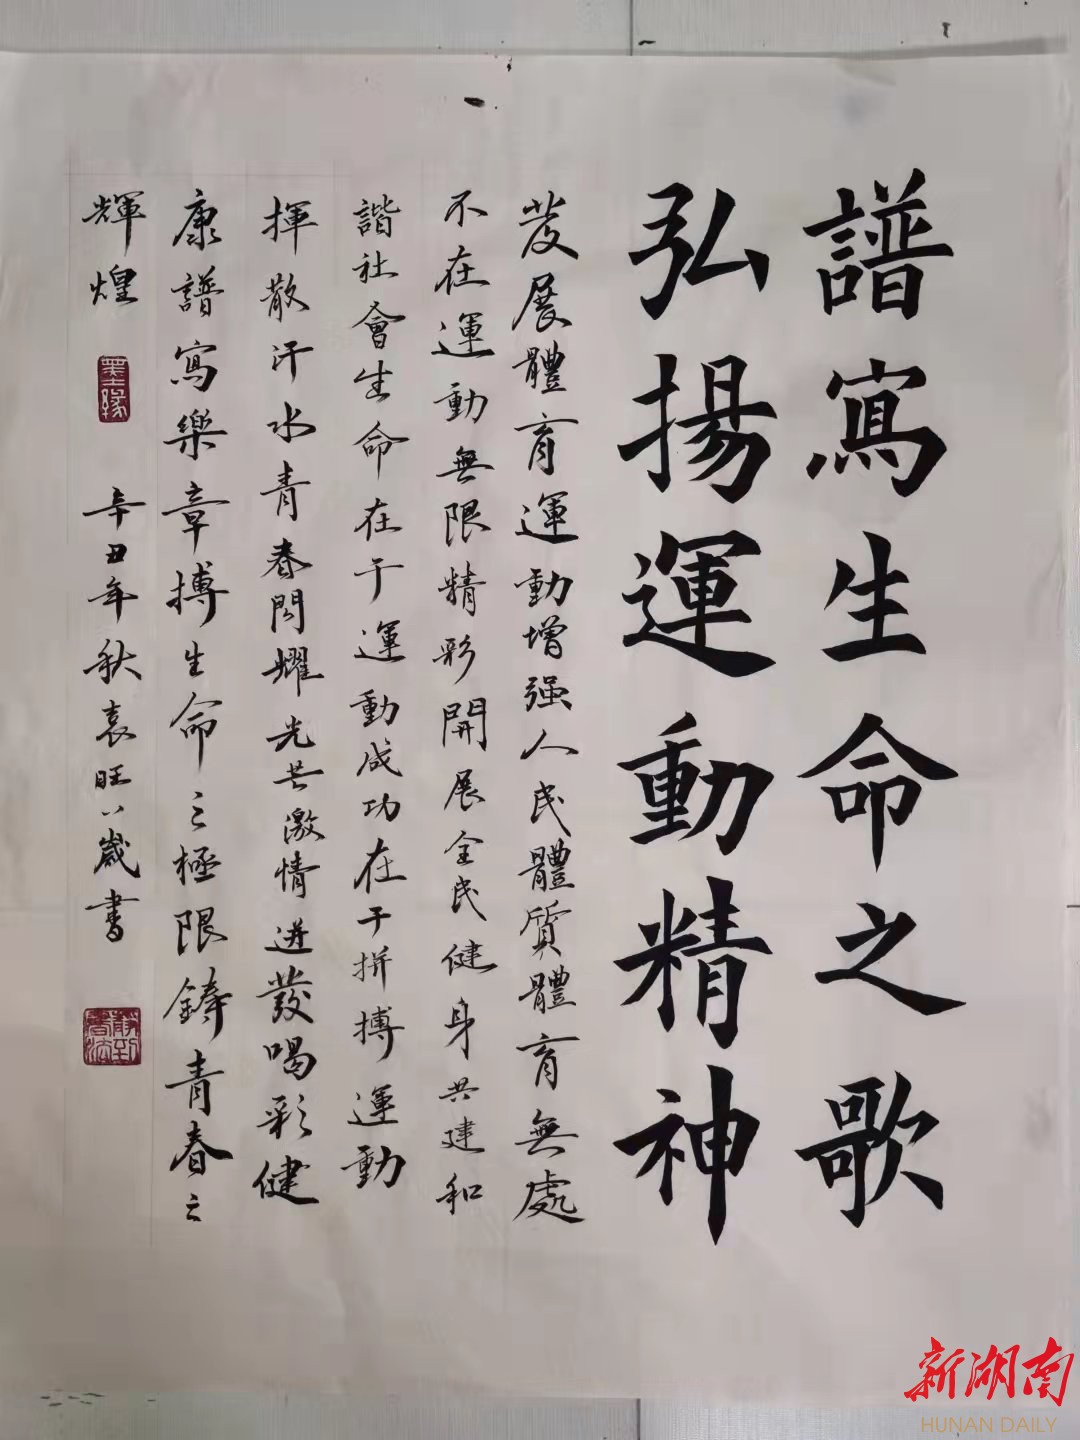 譜寫生命之歌
弘揚運動精神
发展體育運動增强人民體質體育無處
不在運動無限精彩開展全民健身共建和
諧社會生命在于運動成功在于拼搏運動
揮散汗水青春閃耀光芒激情迸發喝彩健
康譜寫樂章搏生命之極限鑄青春之
輝煌
墨缘
辛丑年秋袁旺八歲書
新湖南
HUNAN DAILY